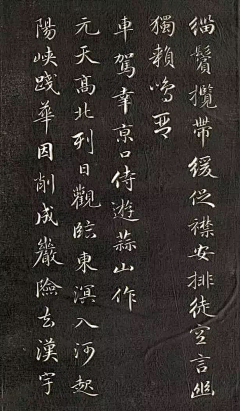 緇鬢攬帶緩促襟安排徒空言幽
獨賴鳴琴
車駕幸京口侍遊蒜山作
元天高北列日觀臨東溟入河起
陽峽踐華因削成巖險去漢宇